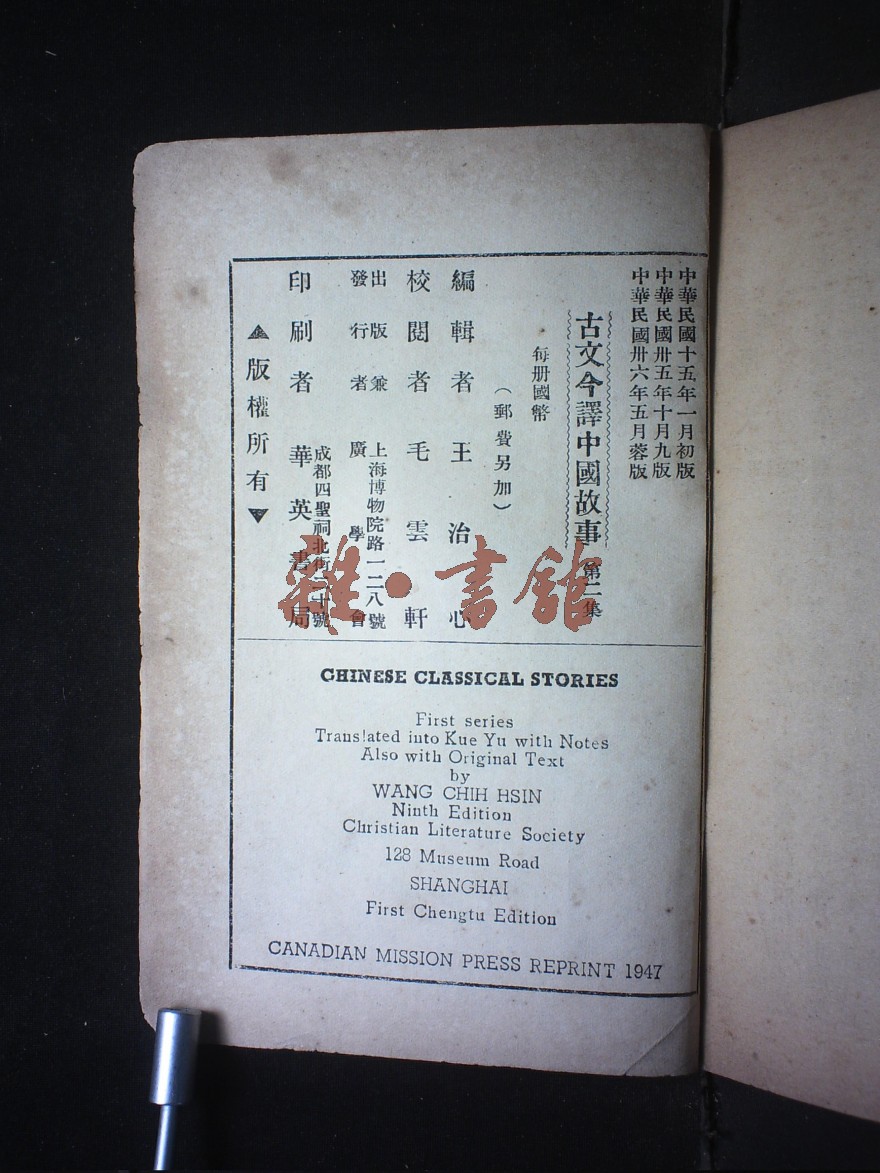 中華民國十五年一月初版
中華民國卅五年十月九版
中華民國卅六年五月蓉版
古文今譯中國故事 第二集
每册國幣
(郵費另加)
編輯者 王治心
校閱者 毛雲軒
出版兼
發行者
上海博物院路一二八號
廣學會
成都四聖祠北街二十號
印刷者 華英書局
▲版權所有▼
雜·書館
CHINESE CLASSICAL STORIES
First series
Translated into Kue Yu with Notes
Also with Original Text
by
WANG CHIH HSIN
Ninth Edition
Christian Literature Society
128 Museum Road
SHANGHAI
First Chengtu Edition
CANADIAN MISSION PRESS REPRINT 1947